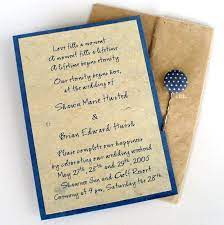 Love fills a moment
A moment fills a lifetime
A lifetime begins eternity
Our eternity begins here,
at the wedding of
Shawn Marie Husted
&
Brian Edward
Please complete our happiness
by celebrating our wedding weekend
May 27th, 28th, and 29th, 2005
Shawnee Inn and Golf Resort
Ceremony at 4 pm, Saturday the 28th.